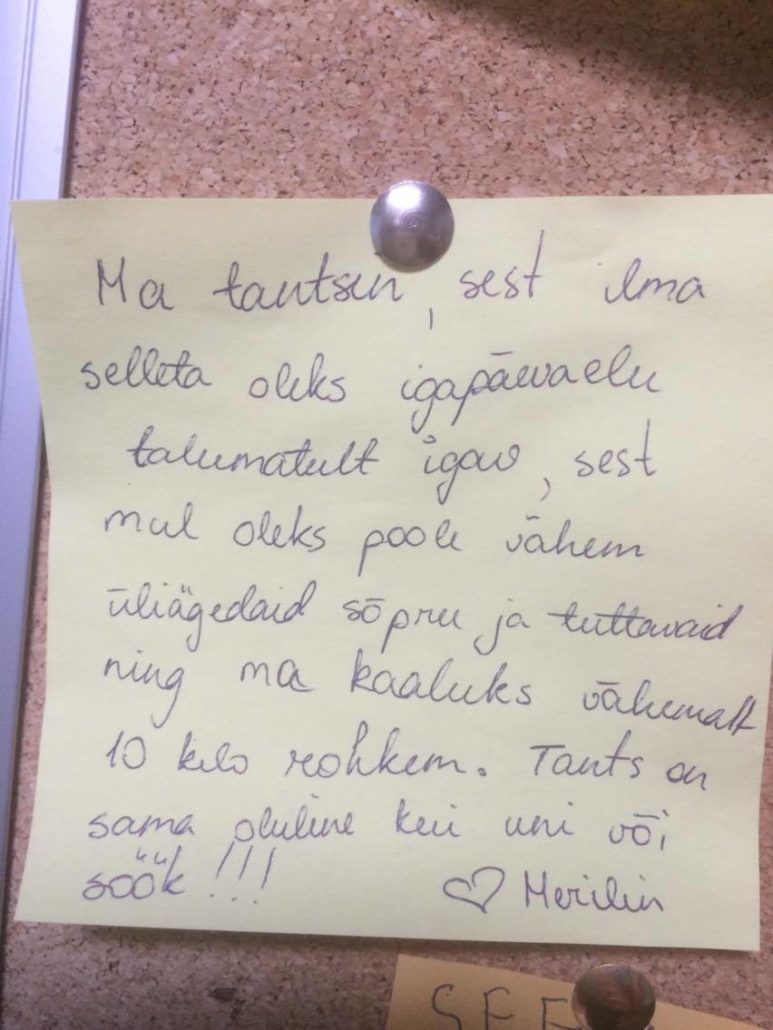 Ma tantsin, sest ilma
selleta oleks igapäevaelu
talumatult igav, sest
mul oleks poole vähem
üliägedaid sõpru ja tuttavaid
ning ma kaaluks vähemalt
10 kilo rohkem. Tants on
sama oluline kui uni või
söök!!! ♡ Merilin
SEE